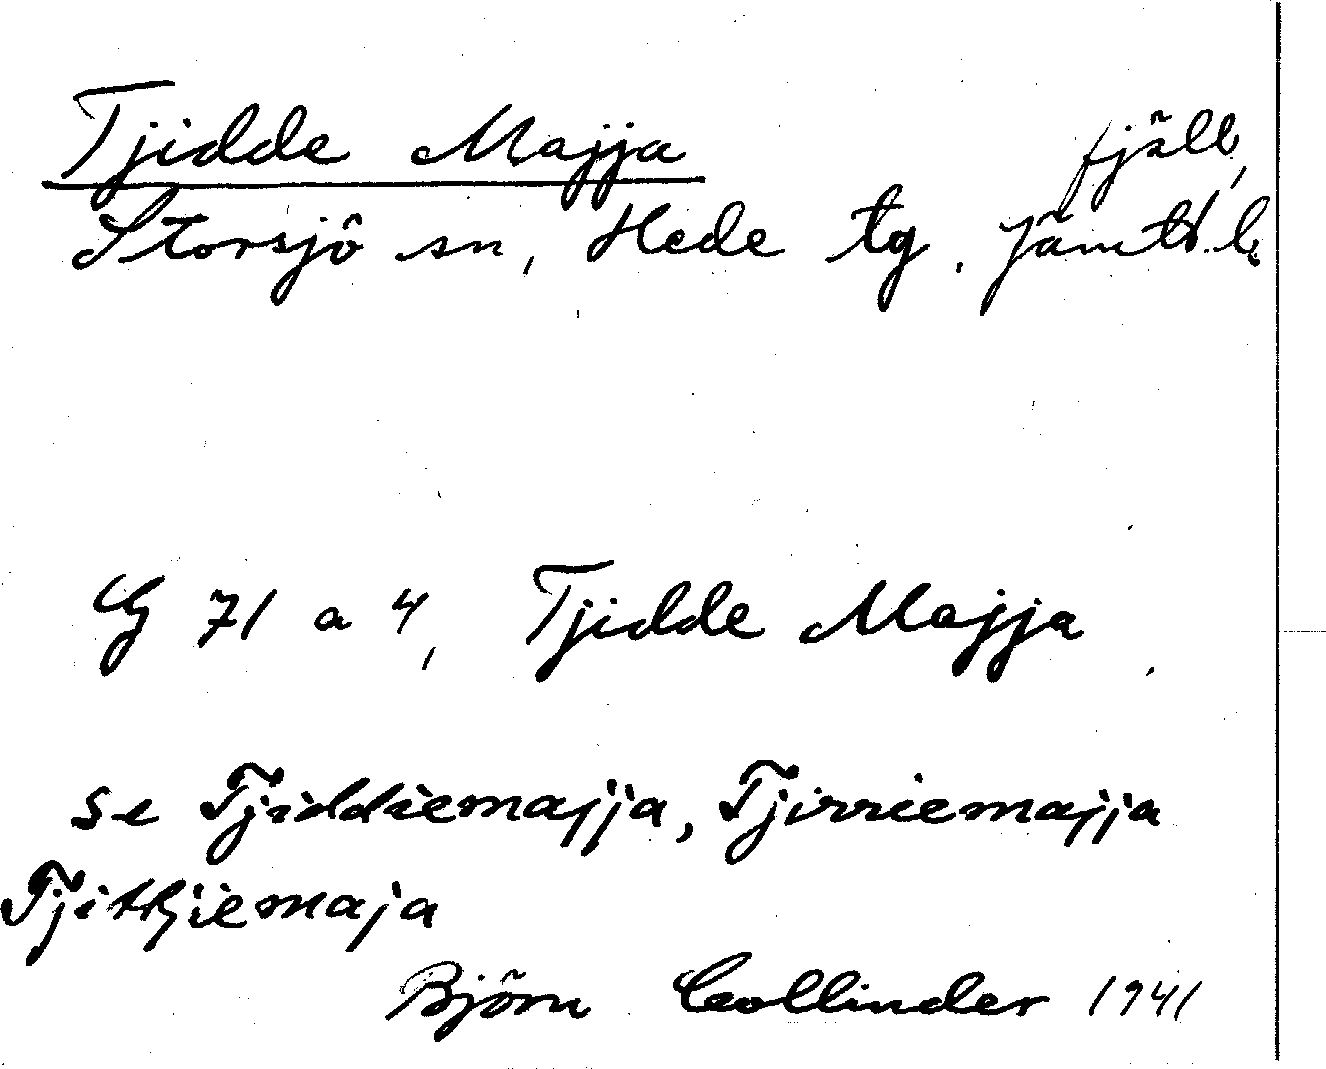 Tjidde Majja
fjäll,
Storsjö sn, Hede tg. Jämtl. l.
G 71 a 4, Tjidde Majja.
se Tjiddiemajja, Tjirriemajja
Björn Collinder 1941